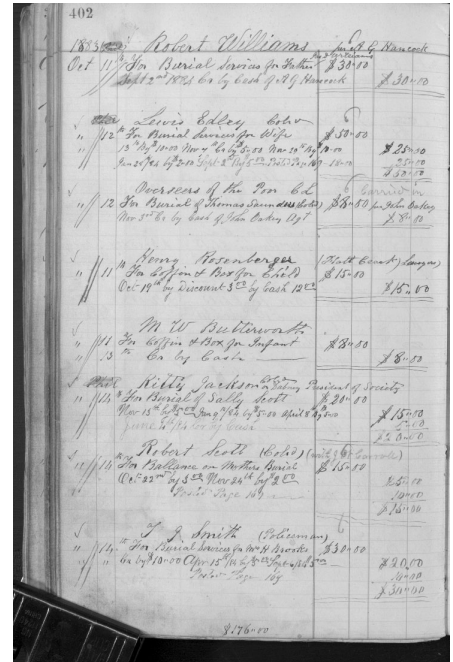 402
1883 Robert Williams A G Hancock
Oct 11 For Burial Services for Father $30.00
Sept 2nd 1884 Cr by Cash of A G Hancock $30.00
Lewis Edley Cold
" 12th For Burial Services for Wife $50.00
13th By $10.00 Nov 7 Cr $5.00 Nov 20th By $10.00 $25.00
25.00
$50.00
Overseers of the Poor
" 12 For Burial of Thomas Saunders (Cold) $8.00 for John Oakey
Nov 3rd Cr by Cash of John Oakey Agt $8.00
Henry Rosenberger
" 11th For Coffin & Box for Child $15.00
Oct 19th by Discount 3.00 by Cash 12.00 $15.00
M W Butterworth
" 11 For Coffin & Box for Infant $8.00
" 13th Cr by Cash $8.00
Kitty Jackson President of Society
" 14th For Burial of Sally Scott $20.00
Nov 13th by $5.00 by $5.00 April 8th $15.00
by Cash 5.00
$20.00
Robert Scott (Cold)
" 14th For Ballance on Mothers Burial $15.00
Oct 22nd by 3.00 Nov 24th by $2.00 $5.00
Posted Page 169 10.00
$15.00
T J Smith (Policeman)
" 14th For Burial Services for Mr H Brooks $30.00
" " Cr by $10.00 Apr 15 $20.00
Posted Page 169 10.00
$30.00
$176.00